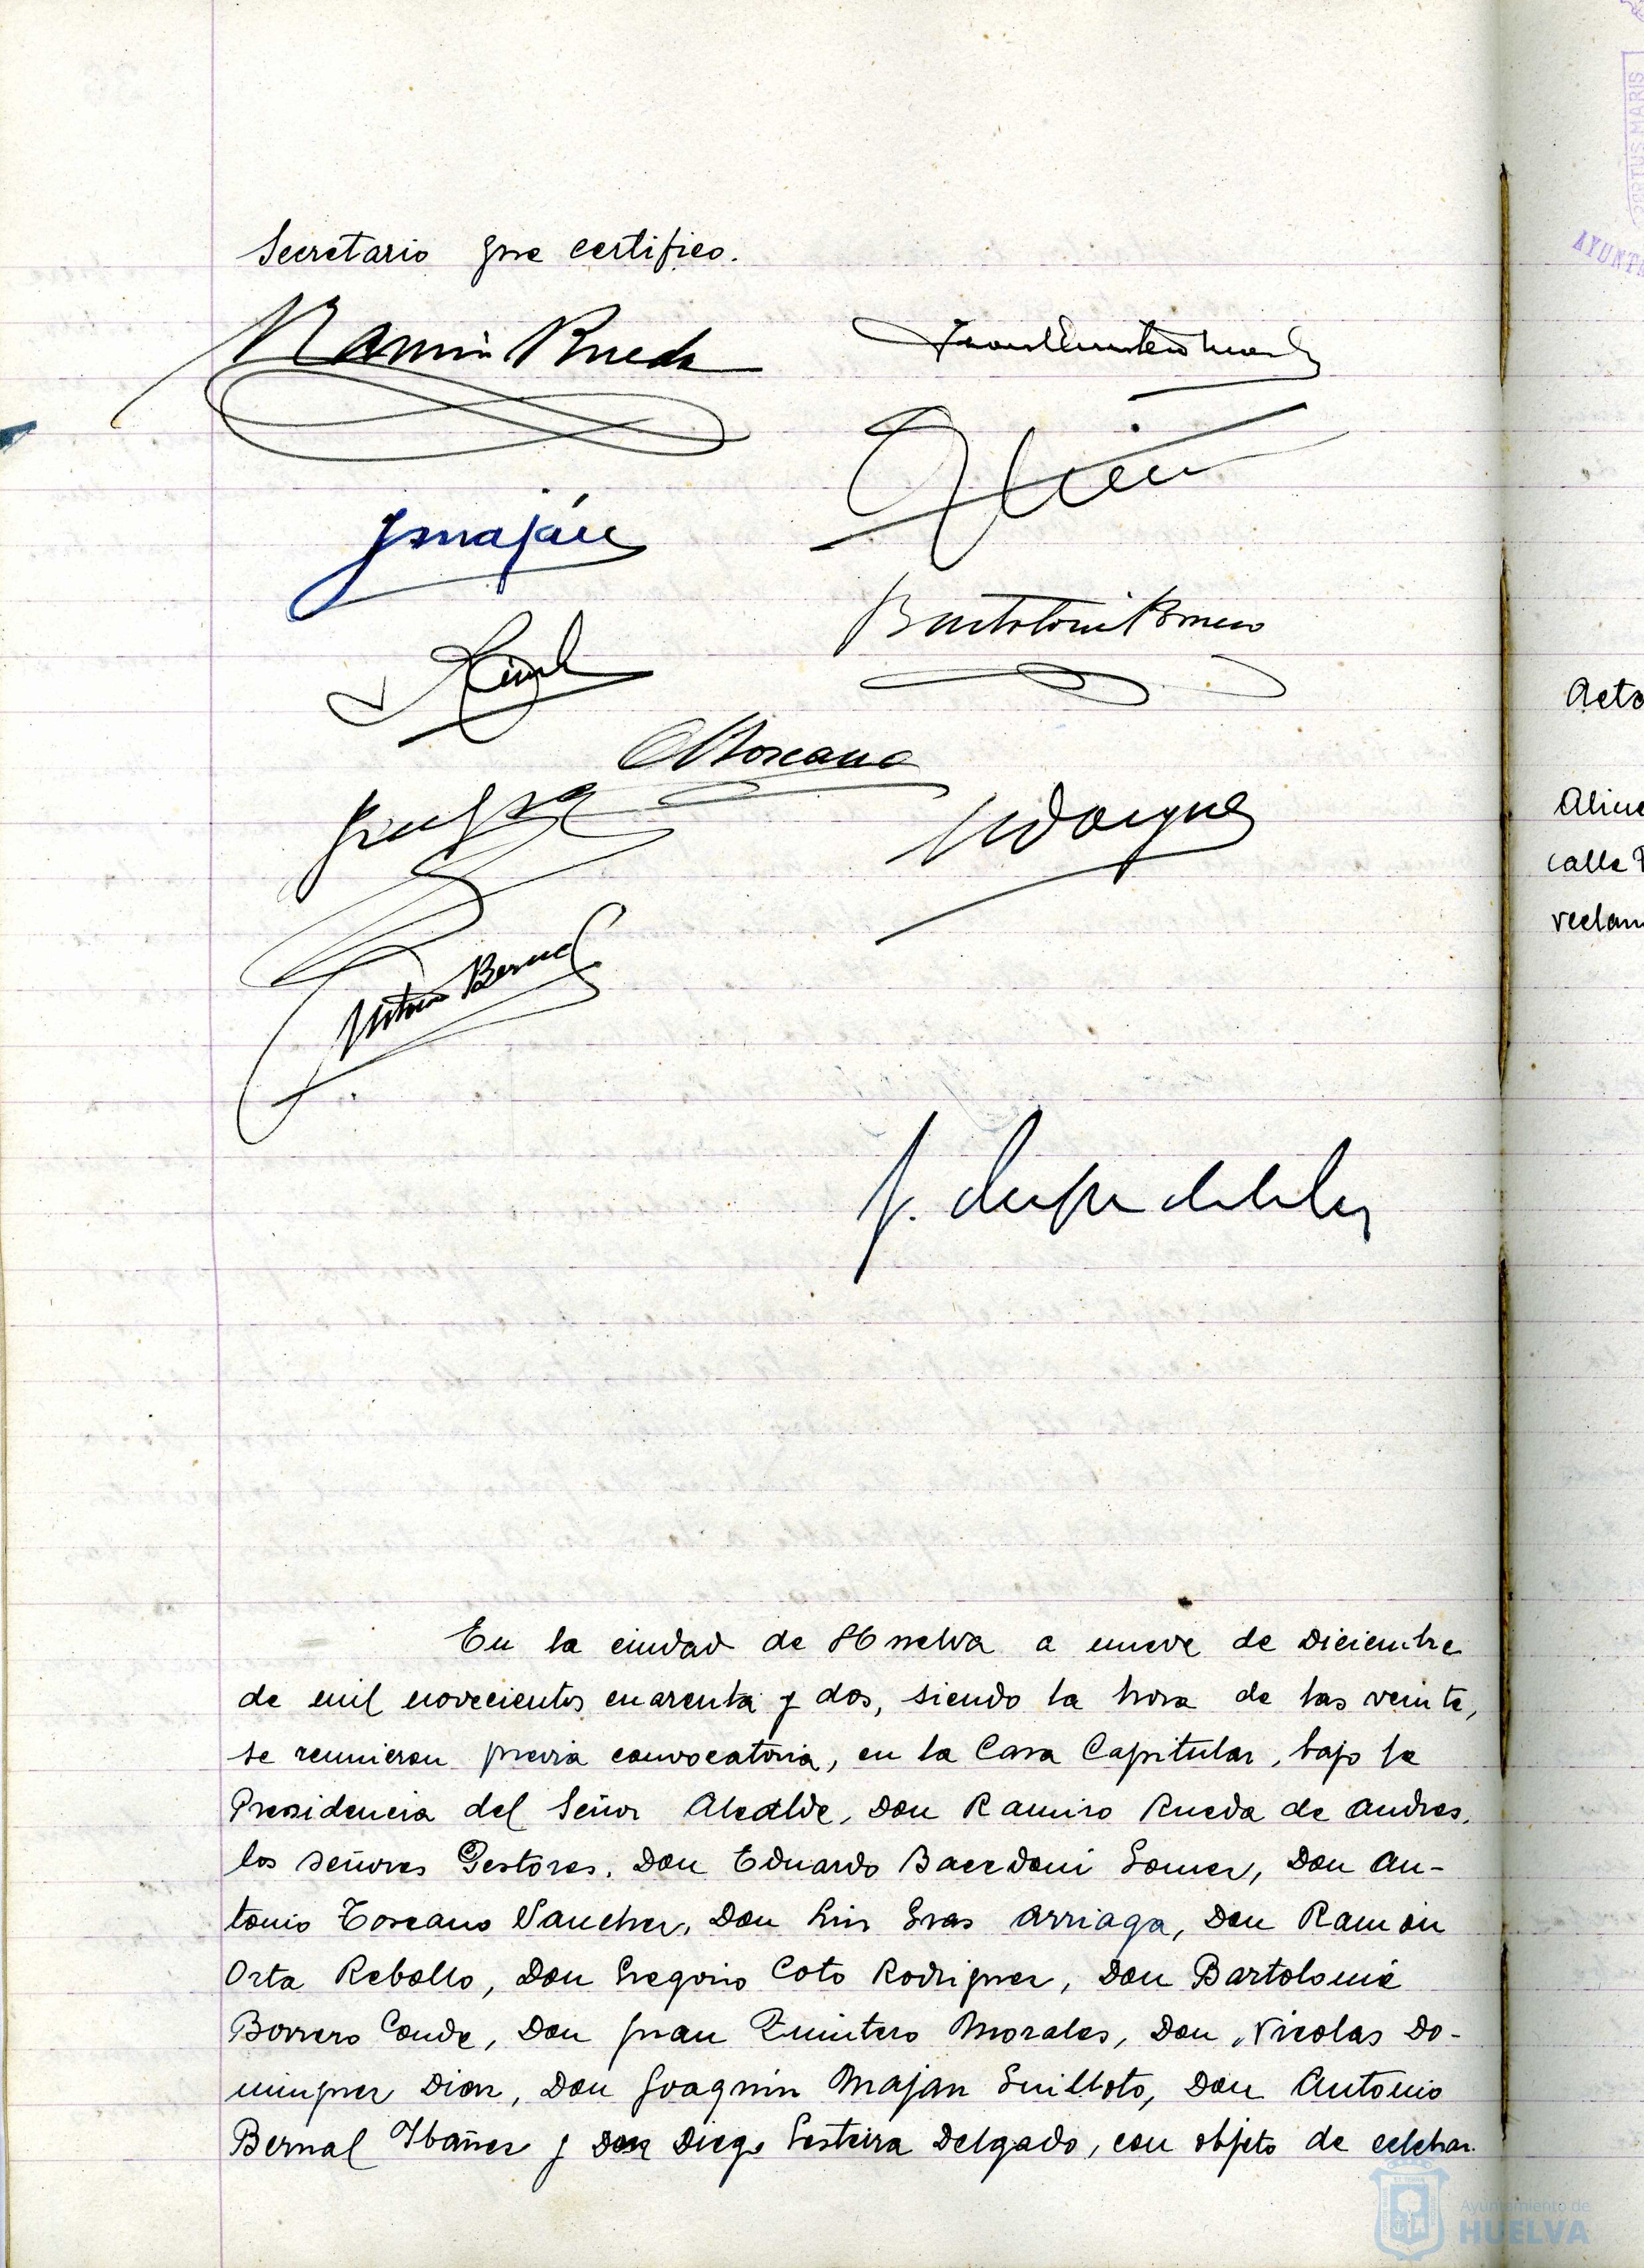 Secretario que certifico.
Ramiro Rueda
Juan Quintero Morales
J Maján
Bartolomé Borrero
A Toscano
N Domguez
Antonio Bernal
En la ciudad de Huelva a nueve de Diciembre
de mil novecientos cuarenta y dos, siendo la hora de las veinte,
se reunieron previa convocatoria, en la Casa Capitular, bajo la
Presidencia del Señor Alcalde, Don Ramiro Rueda de Andres,
los señores Gestores. Don Eduardo Bacedoni Gomez, Don An-
tonio Toscano Sanchez, Don Luis Gras Arriaga, Don Ramón
Orta Rebollo, Don Gregorio Coto Rodriguez, Don Bartolomé
Borrero Conde, Don Juan Quintero Morales, Don Nicolas Do-
minguez Diaz, Don Joaquin Majan Guilloto, Don Antonio
Bernal Ibañez y Don Diego Sesteira Delgado, con objeto de celebrar
PORTUS MARIS
AYUNT
Acta
Aline
calle
reclam
Ayuntamiento de
HUELVA